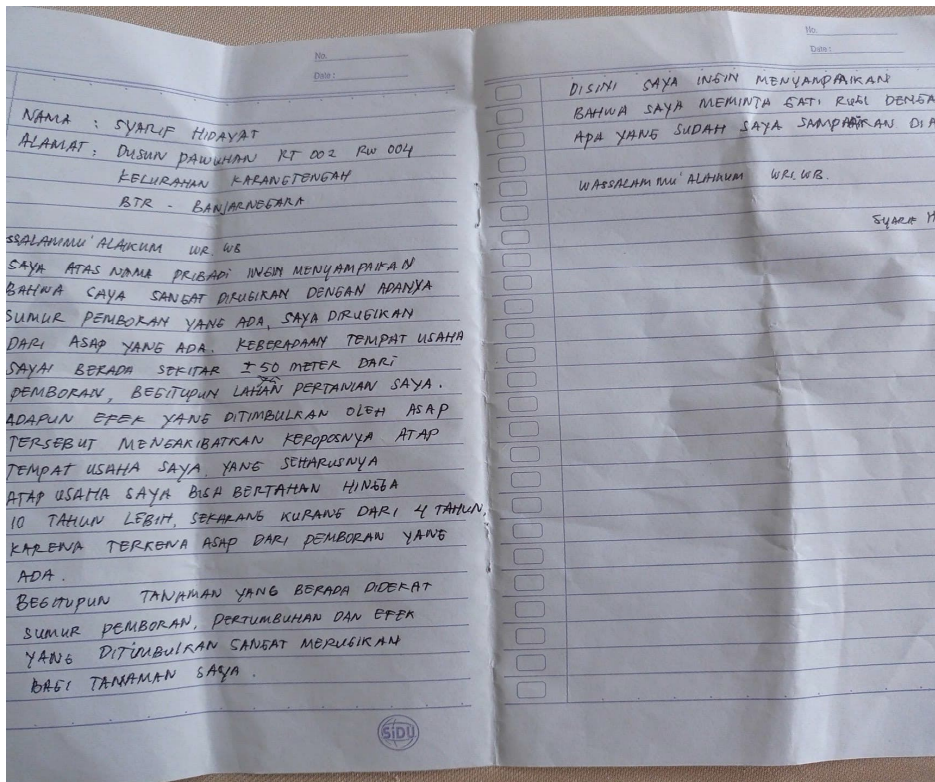 No.
Date :
NAMA : SYARIF HIDAYAT
ALAMAT : DUSUN PAWUHAN RT 002 RW 004
KELURAHAN KARANGTENGAH
BTR - BANJARNEGARA
SSALAMMU'ALAIKUM WR. WB
SAYA ATAS NAMA PRIBADI INGIN MENYAMPAIKAN
BAHWA SAYA SANGAT DIRUGIKAN DENGAN ADANYA
SUMUR PEMBORAN YANG ADA, SAYA DIRUGIKAN
DARI ASAP YANG ADA. KEBERADAAN TEMPAT USAHA
SAYA BERADA SEKITAR ± 50 METER DARI
PEMBORAN, BEGITUPUN LAHAN PERTANIAN SAYA.
ADAPUN EFEK YANG DITIMBULKAN OLEH ASAP
TERSEBUT MENGAKIBATKAN KEROPOSNYA ATAP
TEMPAT USAHA SAYA. YANG SEHARUSNYA
ATAP USAHA SAYA BISA BERTAHAN HINGGA
10 TAHUN LEBIH, SEKARANG KURANG DARI 4 TAHUN,
KARENA TERKENA ASAP DARI PEMBORAN YANG
ADA.
BEGITUPUN TANAMAN YANG BERADA DIDEKAT
SUMUR PEMBORAN, PERTUMBUHAN DAN EFEK
YANG DITIMBULKAN SANGAT MERUGIKAN
BAGI TANAMAN SAYA.
SiDU
No.
Date :
DISINI SAYA INGIN MENYAMPAIKAN
BAHWA SAYA MEMINTA GATI RUGI DENGA
APA YANG SUDAH SAYA SAMPAIKAN DIA
WASSALAMMU'ALAIKUM WR. WB.
SYARIF H